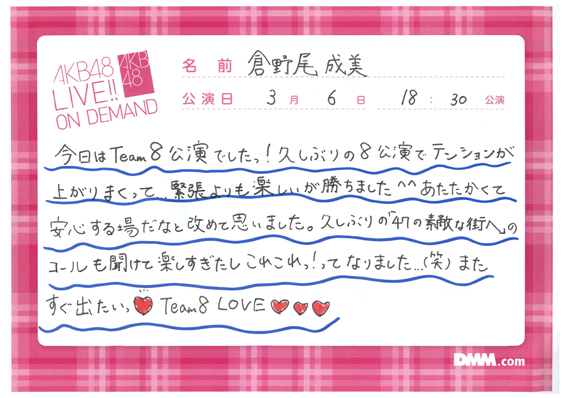 AKB48
LIVE!!
ON DEMAND
AKB
48
名前 倉野尾成美
公演日 3月 6日 18:30 公演
今日はTeam8公演でしたっ!久しぶりの8公演でテンションが
上がりまくって...緊張よりも楽しいが勝ちました^^あたたかくて
安心する場だなと改めて思いました。久しぶりの「47の素敵な街へ」の
コールも聞けて楽しすぎたしこれこれっ!ってなりました...(笑)また
すぐ出たいっ❤ Team8 LOVE ❤❤❤
DMM.com